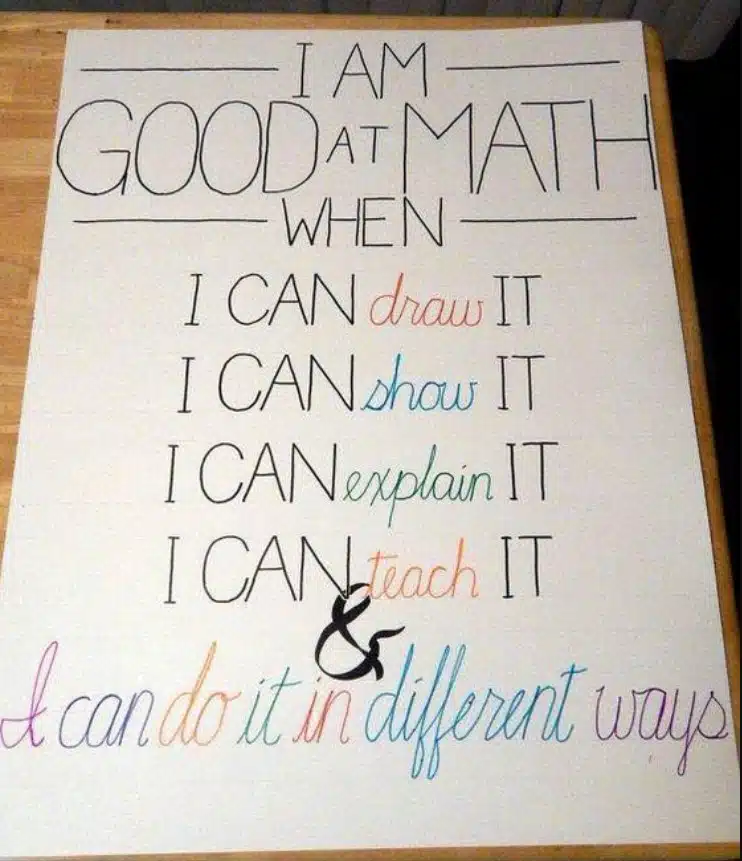 I AM
GOOD AT MATH
WHEN
I CAN draw IT
I CAN show IT
I CAN explain IT
I CAN teach IT
&
I can do it in different ways